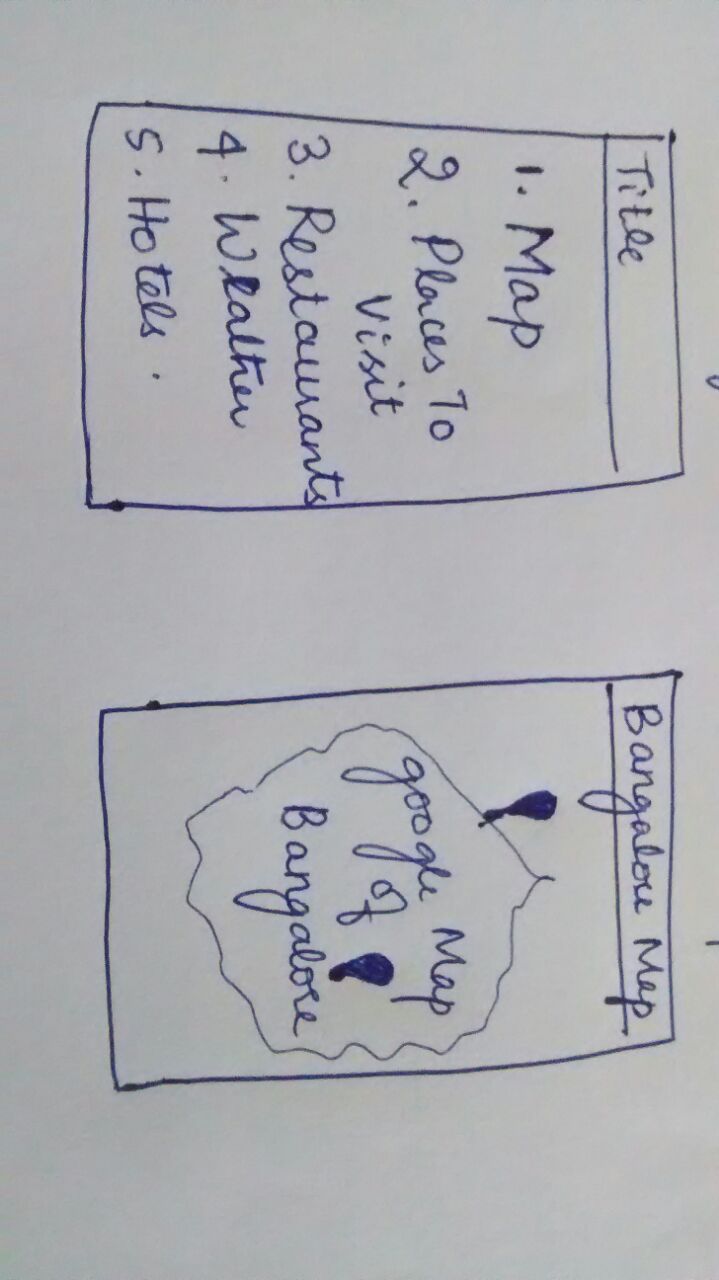 Title
1. Map
2. Places To
Visit
3. Restaurants
4. Weather
5. Hotels.
Bangalore Map
google Map
of
Bangalore